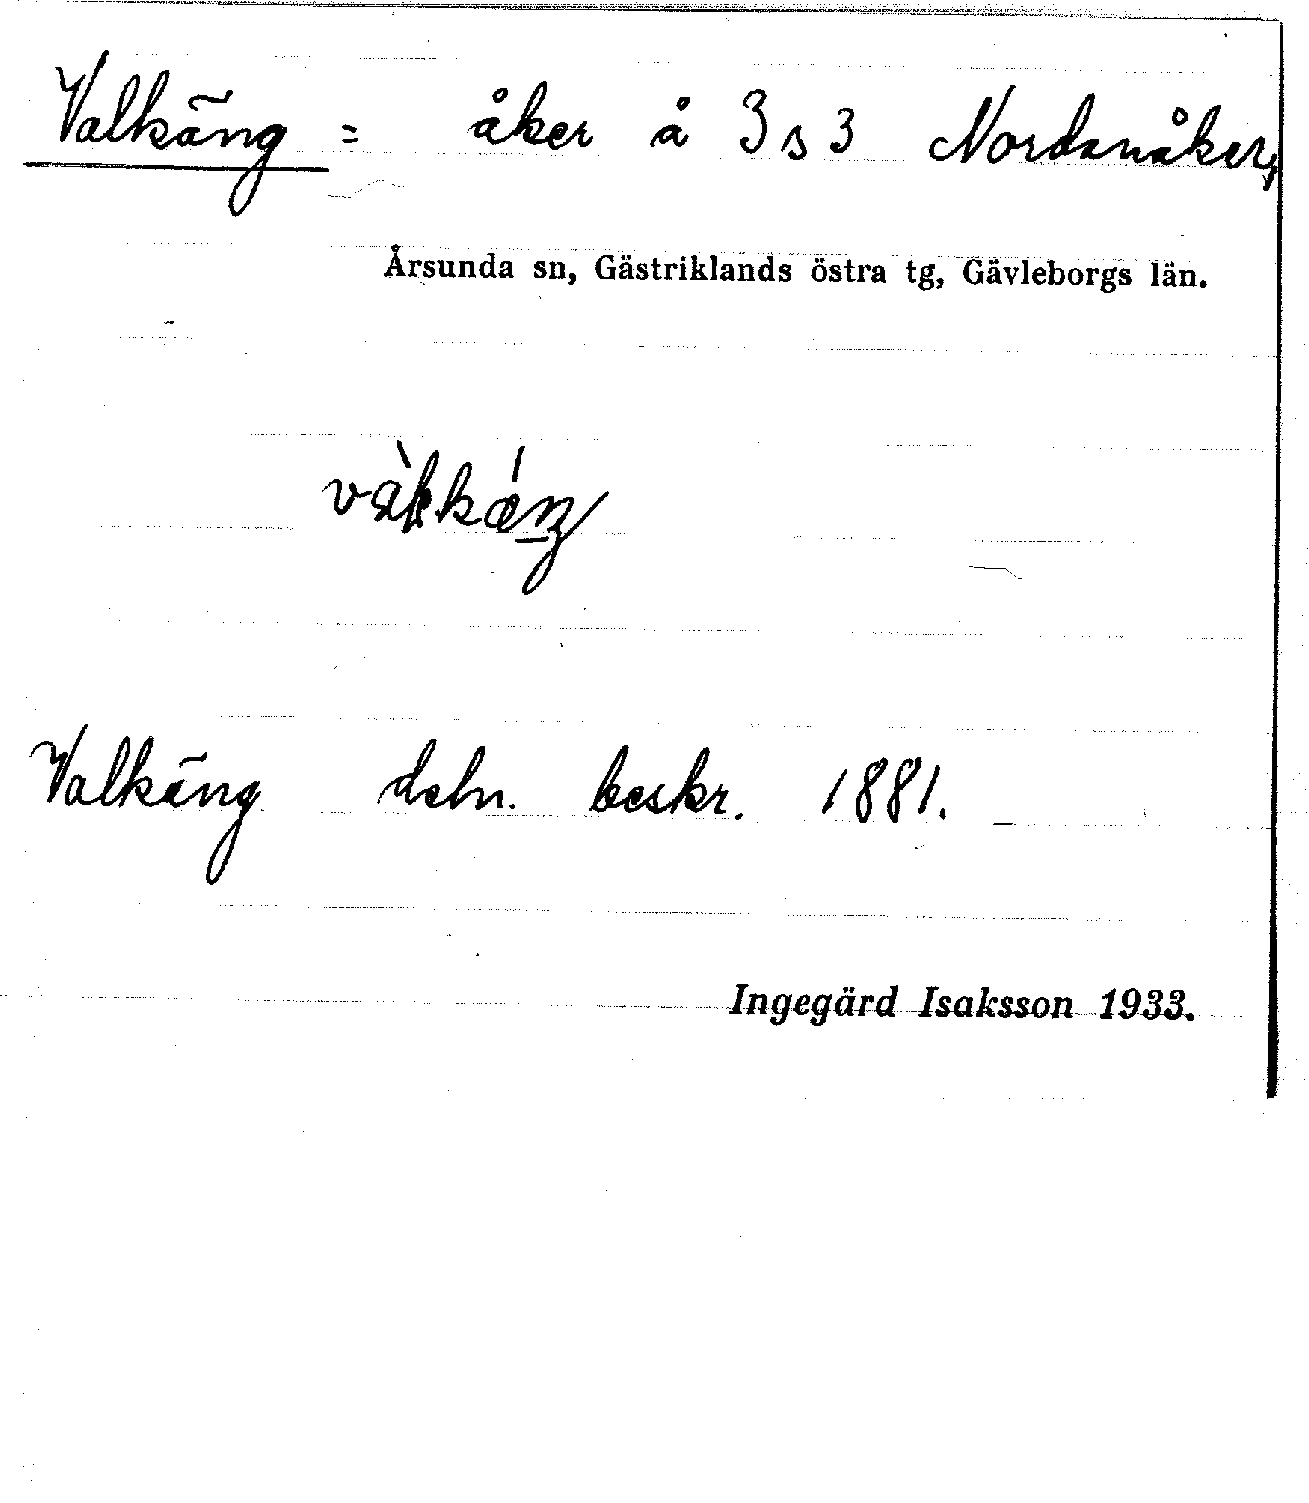 Valkäng = åker å 3 s 3 Nordanåker,
Årsunda sn, Gästriklands östra tg, Gävleborgs län.
Valkäng deln. beskr. 1881.
Ingegärd Isaksson 1933.